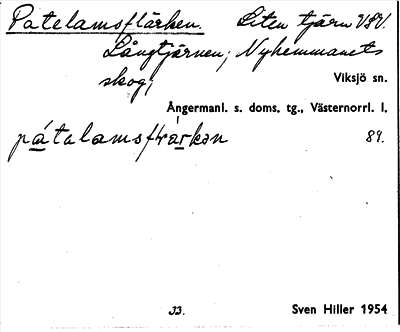 Patelamsflärken. Liten tjärn VSV.
Långtjärnen; Nyhemmanets
skog;
Viksjö sn.
Ångermanl. s. doms. tg., Västernorrl. l.
pátalamsflrárkən 89.
JJ. Sven Hiller 1954